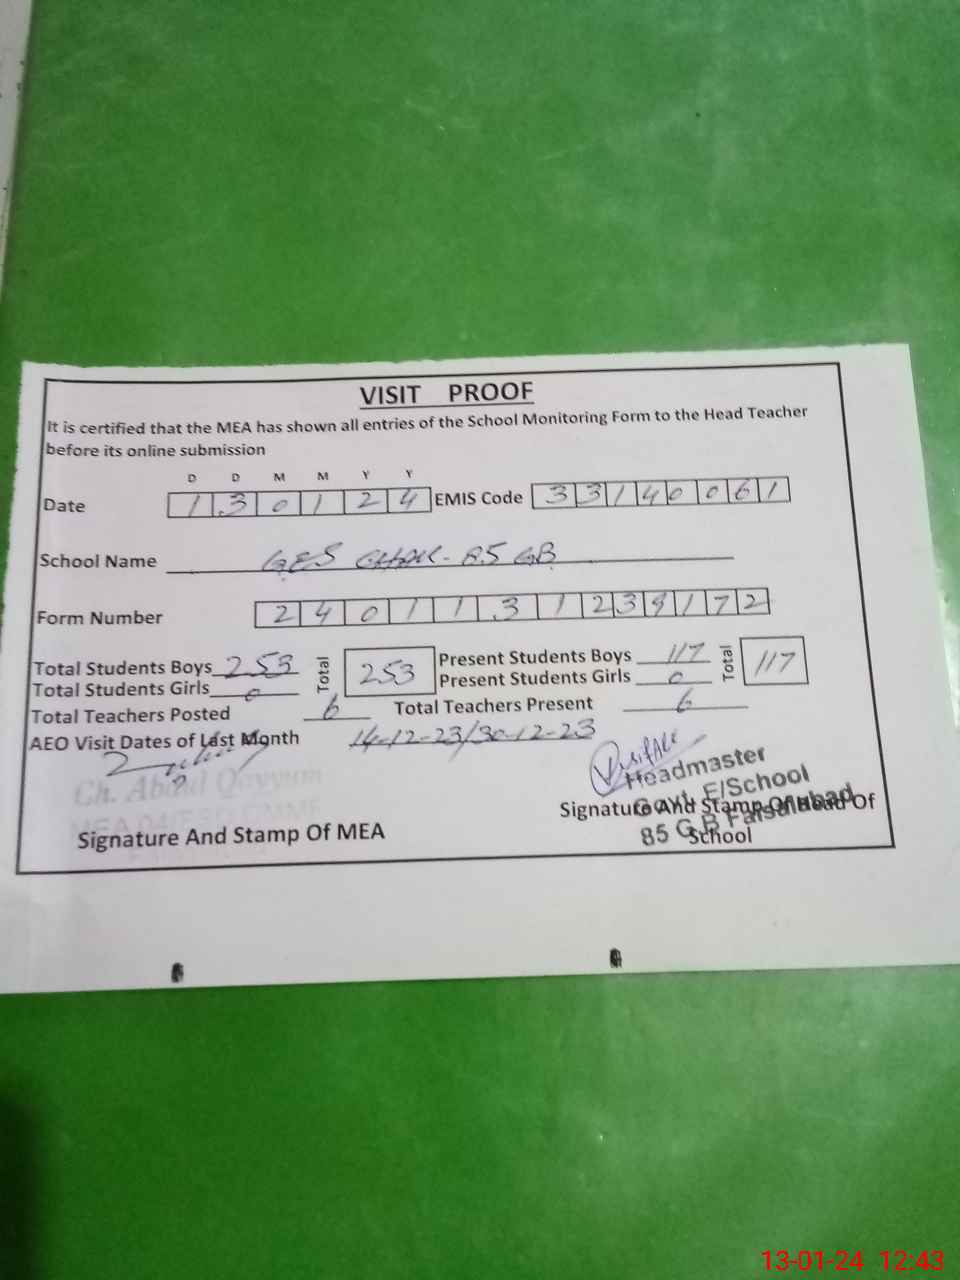 VISIT PROOF
It is certified that the MEA has shown all entries of the School Monitoring Form to the Head Teacher
before its online submission
D D M M Y Y
Date 1 3 0 1 2 4 EMIS Code 3 3 1 4 0 0 6 1
School Name GES CHAK-85 GB
Form Number 2 4 0 1 1 3 1 2 3 9 1 7 2
Total Students Boys 253 Total 253 Present Students Boys 117 Total 117
Total Students Girls 0 Present Students Girls 0
Total Teachers Posted 6 Total Teachers Present 6
AEO Visit Dates of Last Month 14-12-23/30-12-23
Ch. Abdul Qayyum
Headmaster
Govt. E/School
85 G.B Faisalabad
Signature And Stamp Of MEA
Signature And Stamp Of Head Of
School
13-01-24 12:43